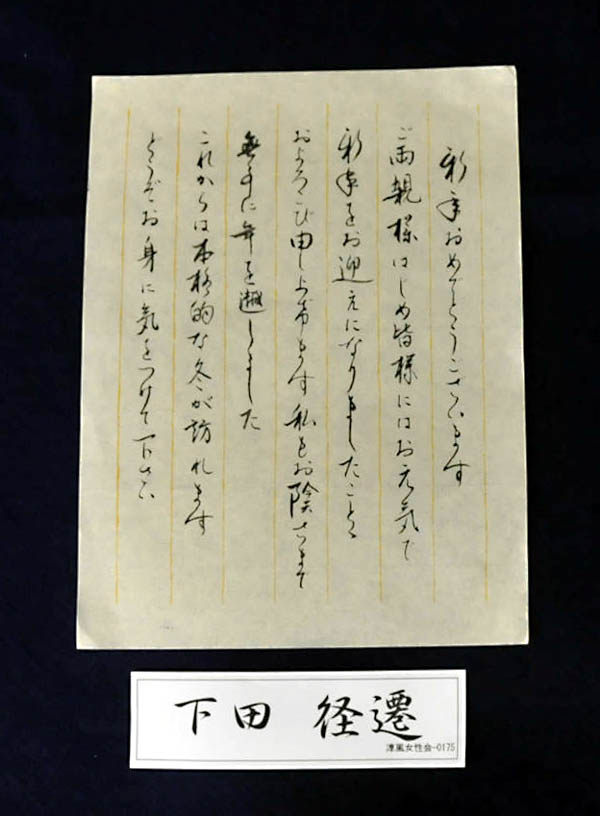 新年おめでとうございます
ご両親様はじめ皆様にはお元気で
新年をお迎えになりましたことゝ
およろこび申し上げます私もお陰さまで
無事に年を越しました
これからは本格的な冬が訪れます
どうぞお身に気をつけて下さい
下田 径遷
凜風女性会-0175